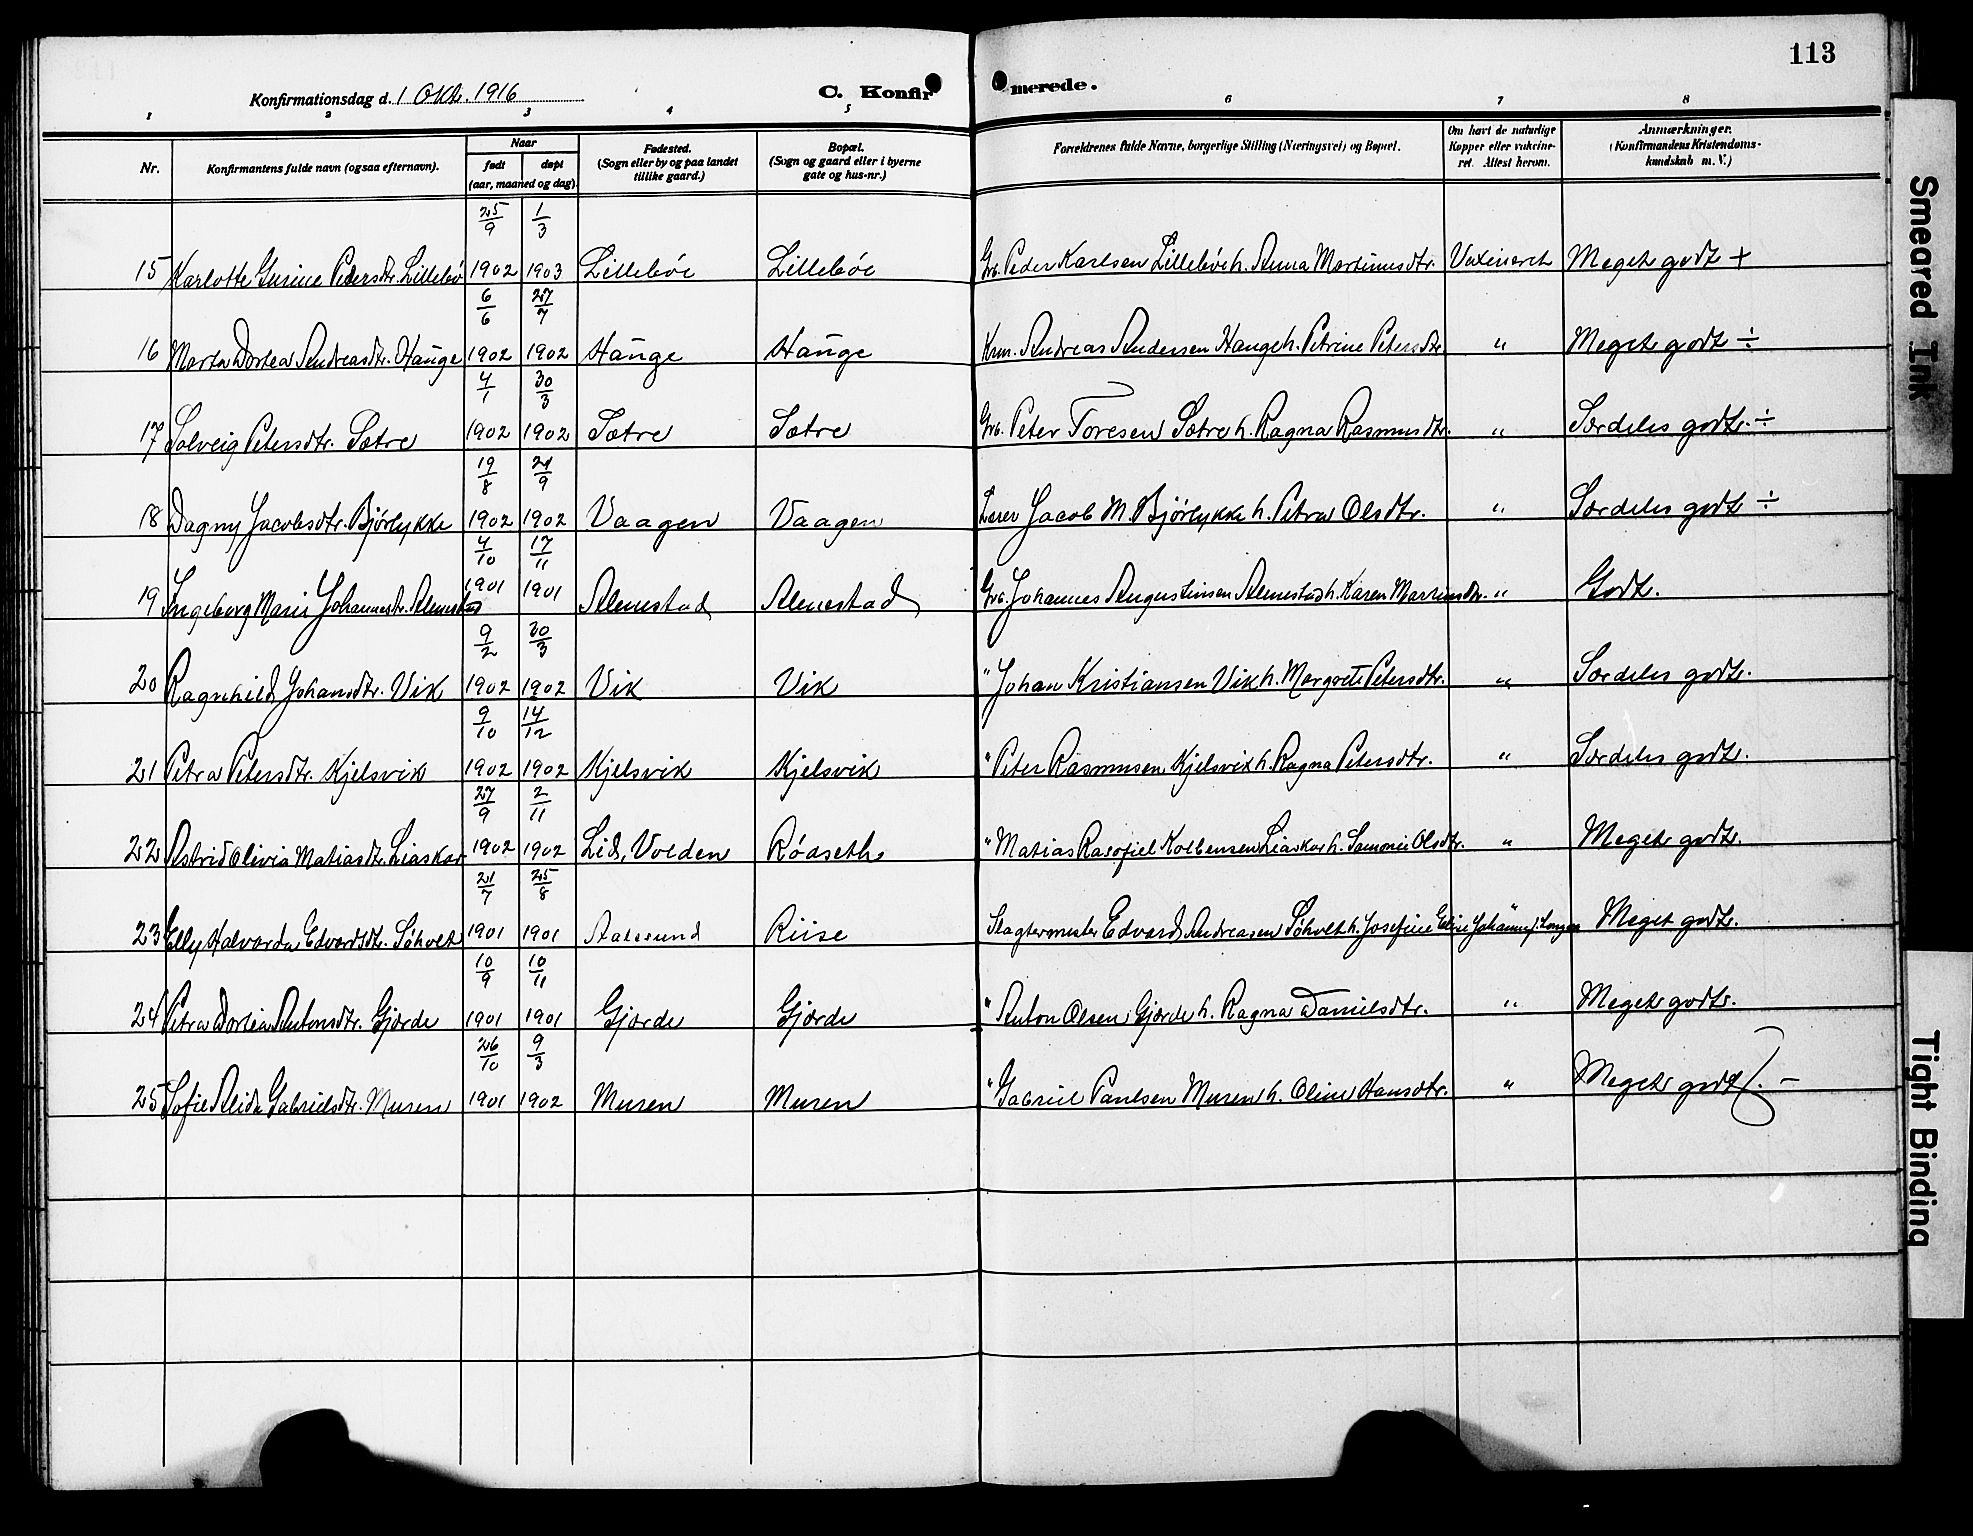 113
Konfirmationsdag d. 1 Okt. 1916
C. Konfirmerede.
1 2 3 4 5 6 7 8
Nr.
Konfirmantens fulde navn (ogsaa efternavn).
Naar
født døpt
(aar, maaned og dag)
Fødested.
(Sogn eller by og paa landet
tillike gaard.)
Bopæl.
(Sogn og gaard eller i byerne
gate og hus-nr.)
Forældrenes fulde Navne, borgerlige Stilling (Næringsvei) og Bopæl.
Om havt de naturlige
Kopper eller vakcine-
ret. Attest herom.
Anmærkninger.
(Konfirmandens Kristendoms-
kundskab m. V.)
25/9 1/3
15 Karlotte Gusine Pedersdtr. Lillebø 1902 1903 Lillebøe Lillebøe Grb. Peder Karlsen Lillebø h. Anna Martinusdtr. Vaxineret Meget godt +
6/6 27/7
16 Marta Dortea Andreasdtr. Hauge 1902 1902 Hauge Hauge Krm. Andreas Andersen Hauge h. Petrine Petersdtr. " Meget godt ÷
4/1 30/3
17 Solveig Petersdtr. Sætre 1902 1902 Sætre Sætre Grb. Peter Toresen Sætre h. Ragna Rasmusdtr. " Særdeles godt. ÷
19/8 21/9
18 Dagny Jacobsdtr. Bjørlykke 1902 1902 Vaagen Vaagen Lærer Jacob M. Bjørlykke h. Petra Olsdtr. " Særdeles godt ÷
4/10 17/11
19 Ingeborg Marie Johannesdtr. Almestad 1901 1901 Almestad Almestad Grb. Johannes Augustinsen Almestad h. Karen Martinsdtr. " Godt.
9/2 30/3
20 Ragnhild Johansdtr. Vik 1902 1902 Vik Vik " Johan Kristiansen Vik h. Margrete Petersdtr. " Særdeles godt.
9/10 14/12
21 Petra Petersdtr. Kjelsvik 1902 1902 Kjelsvik Kjelsvik " Peter Rasmusen Kjelsvik h. Ragna Petersdtr. " Særdeles godt.
27/9 2/11
22 Astrid Olivia Matiasdtr. Liaskar 1902 1902 Lid, Volden Rødseth " Matias Kolbensen Liaskar h. Olsdtr. " Meget godt.
21/7 25/8
23 Elly Halvarda Edvardsdtr. Søholt 1901 1901 Aalesund Riise Slagtermester Edvard Andreasen Søholt h. Josefine Elise " Meget godt.
10/9 10/11
24 Petra Dortea Antonsdtr. Gjærde 1901 1901 Gjærde Gjærde " Anton Olsen Gjærde h. Ragna Danielsdtr. " Meget godt.
26/10 9/3
25 Sofie Alida Gabrielsdtr. Muren 1901 1902 Muren Muren " Gabriel Paulsen Muren h. Oline Hansdtr. " Meget godt. –
Smeared Ink
Tight Binding